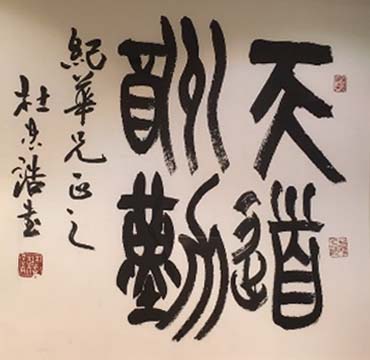 天道
酬勤
紀華兄正之
杜忠誥書